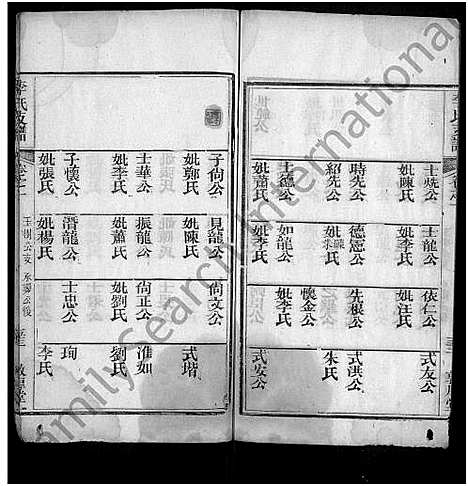 士堯公
妣陳氏
士龍公
妣李氏
依仁公
妣汪氏
式友公
時先公
紹先公
德憲公
妣陳氏
朱氏
先穆公
式洪公
朱氏
士德公
妣蕭氏
如龍公
妣李氏
懷金公
妣李氏
式安公
子尙公
妣鄭氏
見龍公
妣陳氏
尙文公
式堦
士華公
妣李氏
振龍公
妣蕭氏
尙正公
妣劉氏
淮如
劉氏
子懷公
妣張氏
潛龍公
妣楊氏
士忠公
珣
李氏
李氏支譜
敦厚堂
FamilySearch International